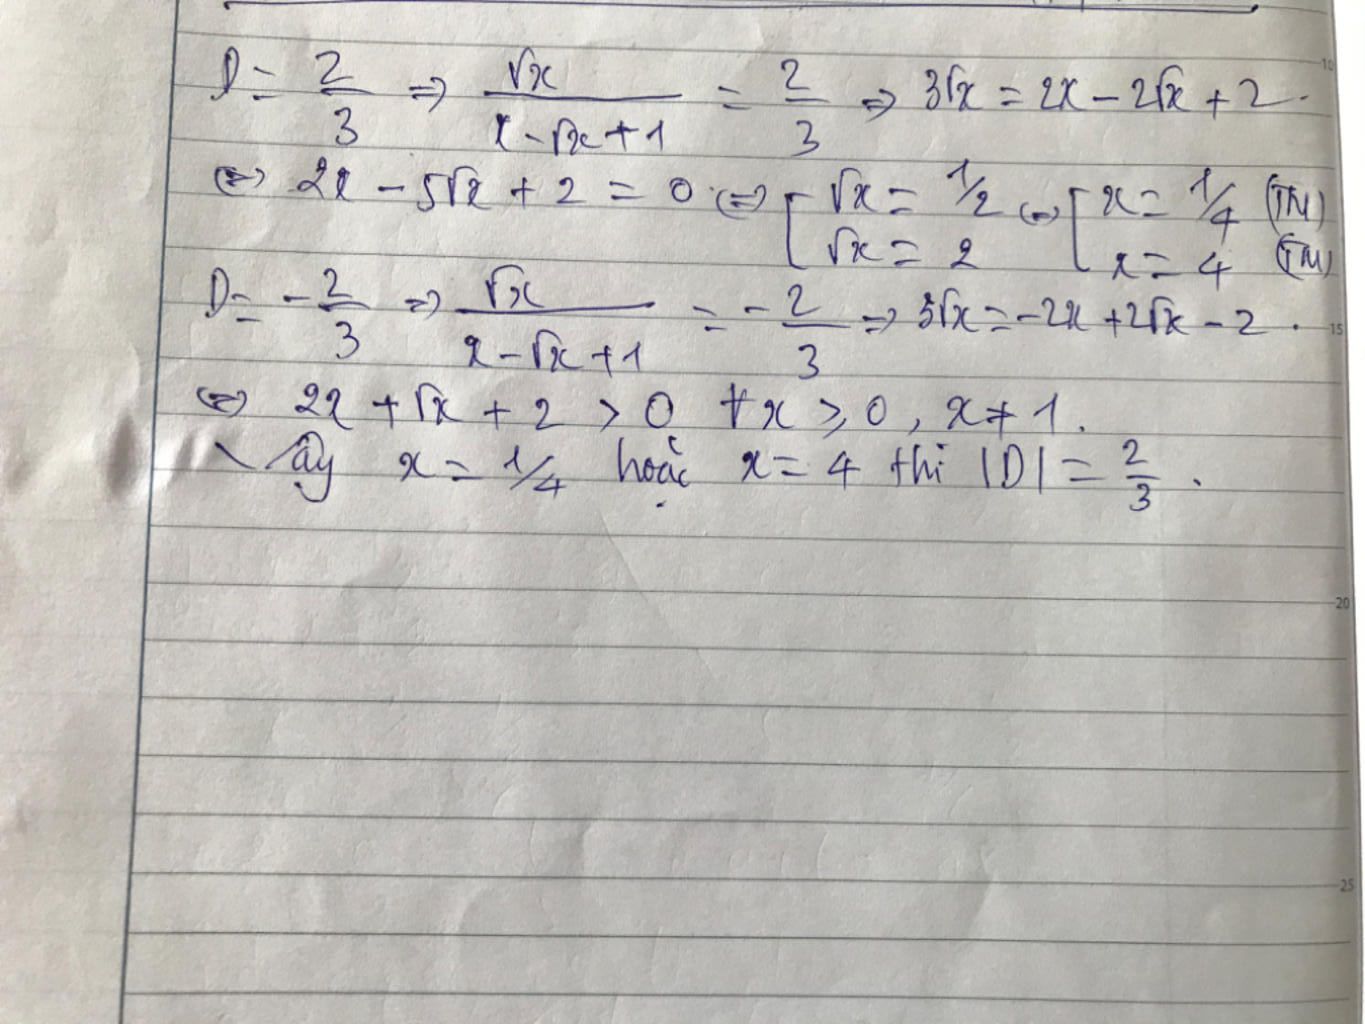 D = 2/3 => √x / (x - √x + 1) = 2/3 => 3√x = 2x - 2√x + 2.
<=> 2x - 5√x + 2 = 0 <=> [ √x = 1/2 <=> [ x = 1/4 (TM)
√x = 2 x = 4 (TM)
D = -2/3 => √x / (x - √x + 1) = -2/3 => 3√x = -2x + 2√x - 2.
<=> 2x + √x + 2 > 0 ∀x ≥ 0, x ≠ 1.
Vậy x = 1/4 hoặc x = 4 thì |D| = 2/3.
10
15
20
25